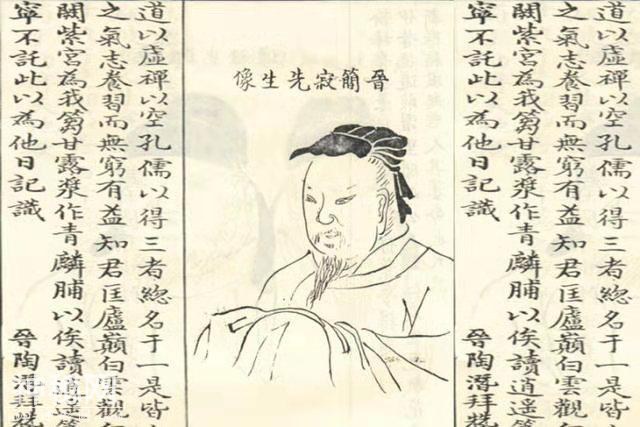 道以虛禪以空孔儒以得三者總名于一是皆
之氣志養習而無窮有益知君匡廬巔白雲觀
闕紫宮為我篘甘露漿作青麟脯以俟讀逍遙
寧不託此以為他日記識 晉陶潛拜
晉簡寂先生像
道以虛禪以空孔儒以得三者總名于一是皆
之氣志養習而無窮有益知君匡廬巔白雲觀
闕紫宮為我篘甘露漿作青麟脯以俟讀逍遙
寧不託此以為他日記識 晉陶潛拜